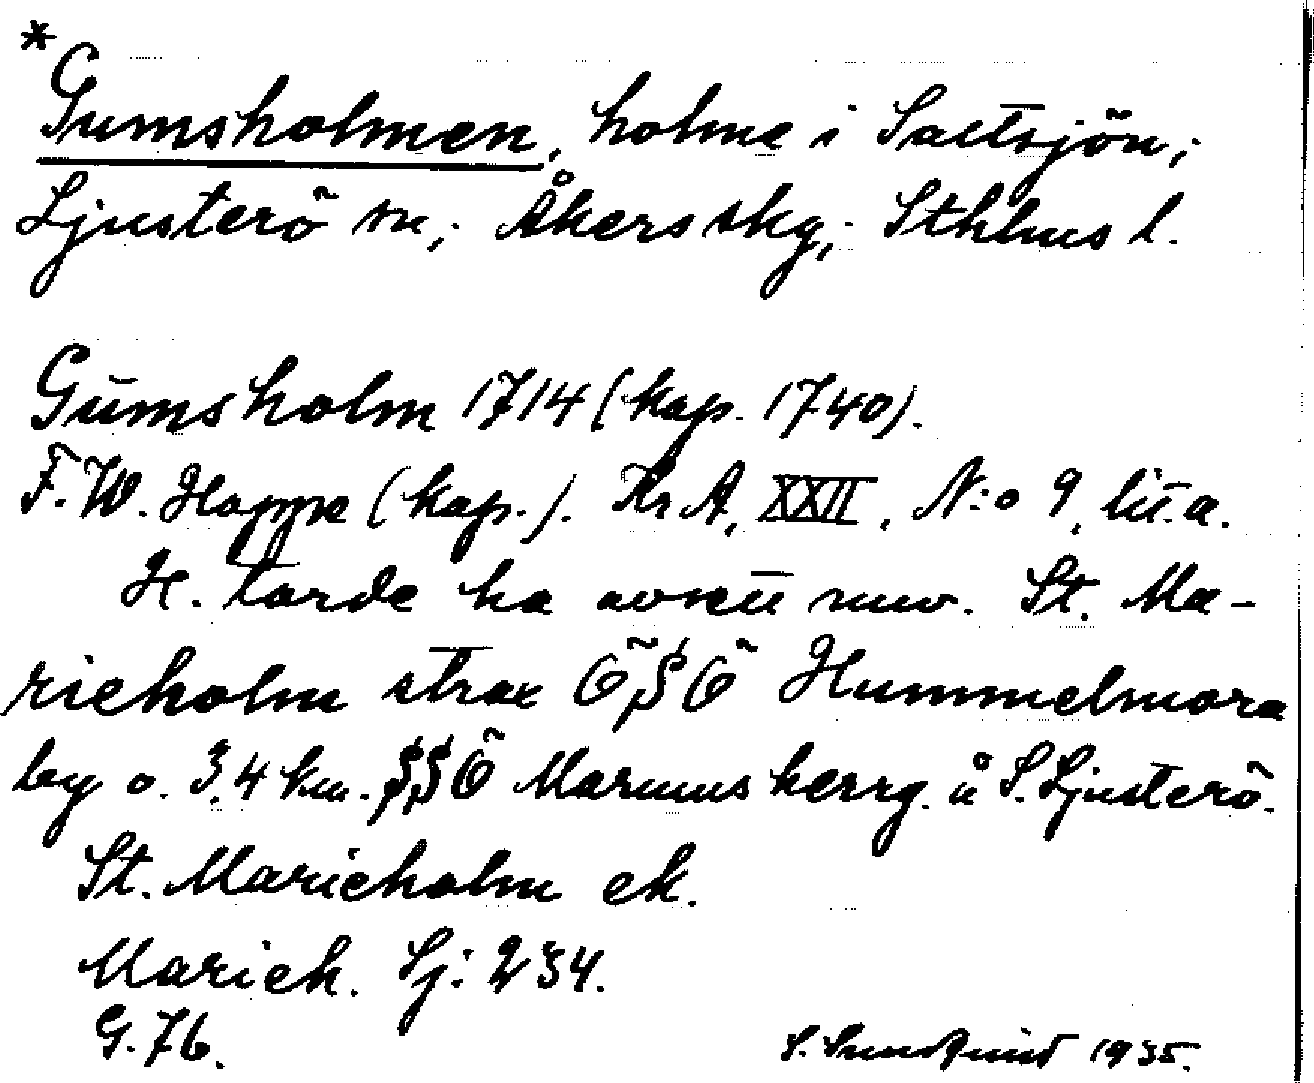 *Gumsholmen, holme i Saltsjön;
Ljusterö sn; Åkers skg; Sthlms l.
Gŭmsholm 1714 (kap. 1740).
F.W. Hoppe (kap.). KrA, XXII, N:o 9, lit. a.
H. torde ha avsett nuv. St. Ma-
rieholm strax Ö§Ö Hummelmora
by o. 3,4 km. §§Ö Marums herrg. å S. Ljusterö.
St. Marieholm ek.
Marieh. Sj: 234.
G. 76.
S. 1935.